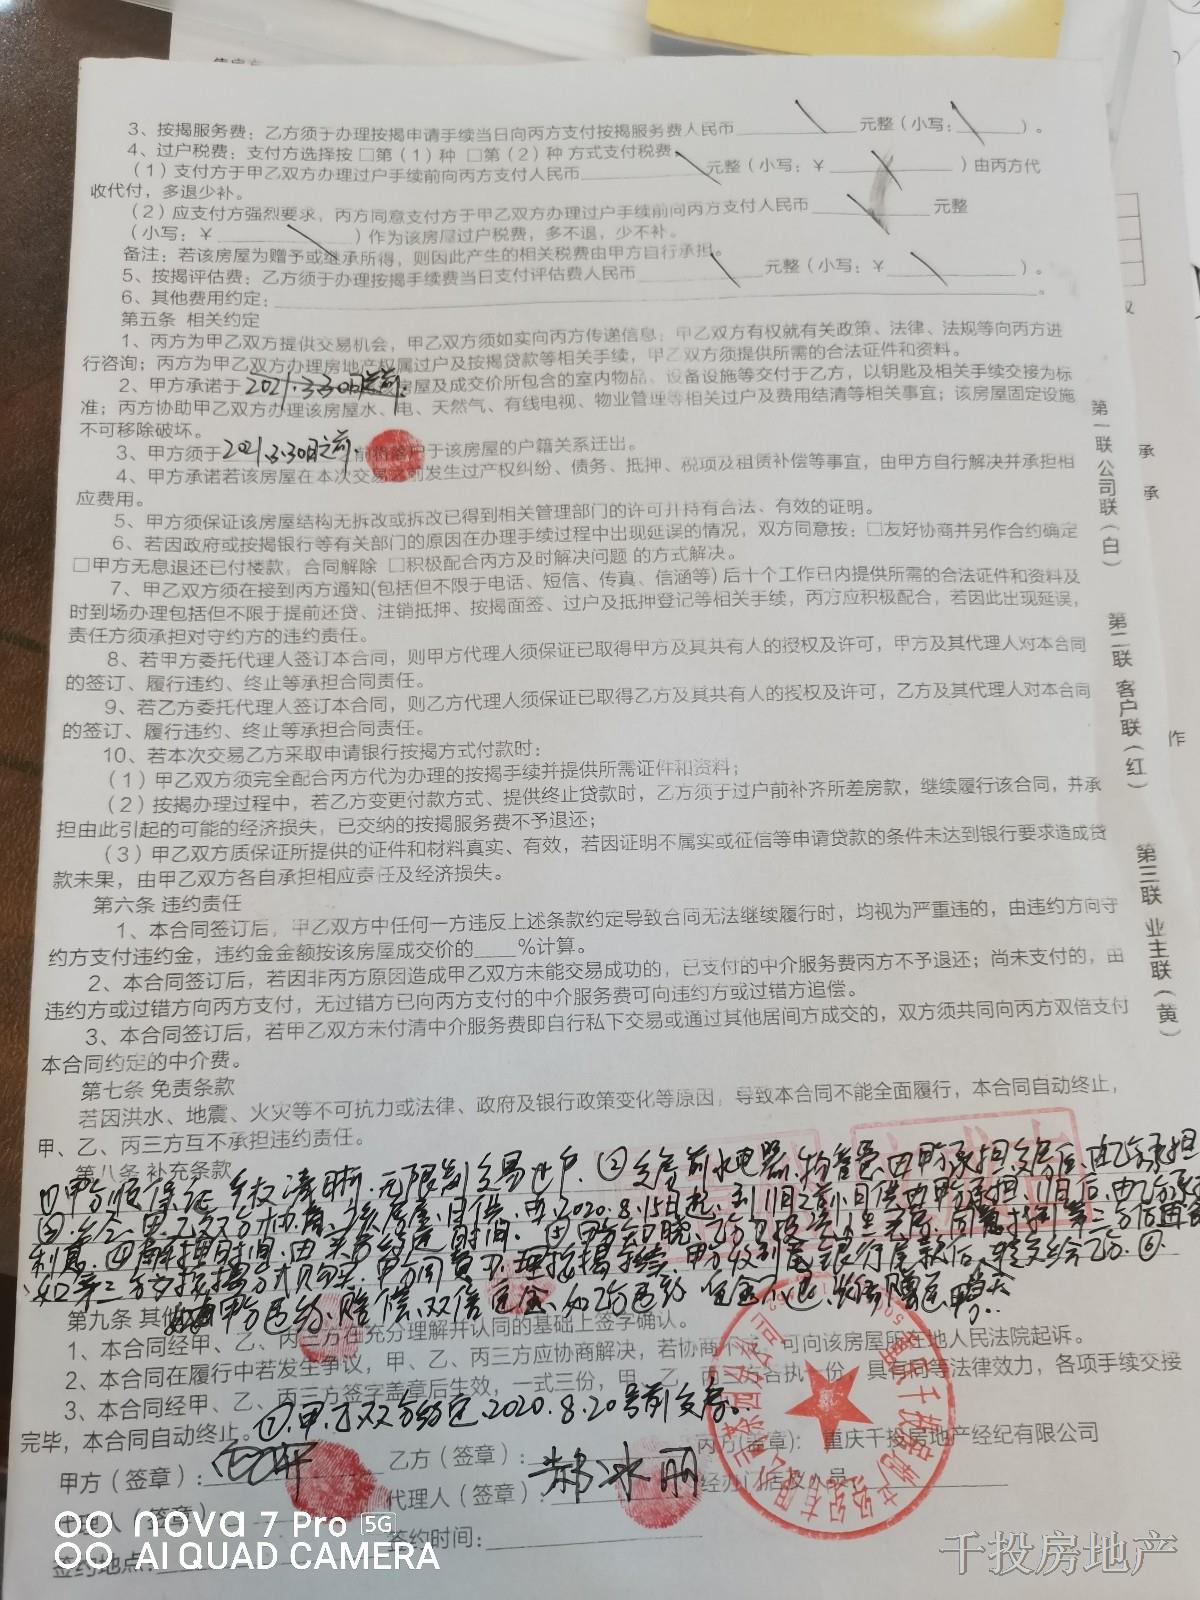 3、按揭服务费：乙方须于办理按揭申请手续当日向丙方支付按揭服务费人民币 元整（小写： ）。
4、过户税费：支付方选择按 □第（1）种 □第（2）种 方式支付税费
（1）支付方于甲乙双方办理过户手续前向丙方支付人民币 元整（小写：￥ ）由丙方代
收代付，多退少补。
（2）应支付方强烈要求，丙方同意支付方于甲乙双方办理过户手续前向丙方支付人民币 元整
（小写：￥ ）作为该房屋过户税费，多不退，少不补。
备注：若该房屋为赠予或继承所得，则因此产生的相关税费由甲方自行承担。
5、按揭评估费：乙方须于办理按揭手续费当日支付评估费人民币 元整（小写：￥ ）。
6、其他费用约定：
第五条 相关约定
1、丙方为甲乙双方提供交易机会，甲乙双方须如实向丙方传递信息；甲乙双方有权就有关政策、法律、法规等向丙方进
行咨询；丙方为甲乙双方办理房地产权属过户及按揭贷款等相关手续，甲乙双方须提供所需的合法证件和资料。
2、甲方承诺于2021.3.30日之前房屋及成交价所包含的室内物品、设备设施等交付于乙方，以钥匙及相关手续交接为标
准；丙方协助甲乙双方办理该房屋水、电、天然气、有线电视、物业管理等相关过户及费用结清等相关事宜；该房屋固定设施
不可移除破坏。
3、甲方须于2021.3.30日之前前将落户于该房屋的户籍关系迁出。
4、甲方承诺若该房屋在本次交易之前发生过产权纠纷、债务、抵押、税项及租赁补偿等事宜，由甲方自行解决并承担相
应费用。
5、甲方须保证该房屋结构无拆改或拆改已得到相关管理部门的许可并持有合法、有效的证明。
6、若因政府或按揭银行等有关部门的原因在办理手续过程中出现延误的情况，双方同意按：□友好协商并另作合约确定
□甲方无息退还已付楼款，合同解除 □积极配合丙方及时解决问题 的方式解决。
7、甲乙双方须在接到丙方通知(包括但不限于电话、短信、传真、信涵等) 后十个工作日内提供所需的合法证件和资料及
时到场办理包括但不限于提前还贷、注销抵押、按揭面签、过户及抵押登记等相关手续，丙方应积极配合，若因此出现延误，
责任方须承担对守约方的违约责任。
8、若甲方委托代理人签订本合同，则甲方代理人须保证已取得甲方及其共有人的授权及许可，甲方及其代理人对本合同
的签订、履行违约、终止等承担合同责任。
9、若乙方委托代理人签订本合同，则乙方代理人须保证已取得乙方及其共有人的授权及许可，乙方及其代理人对本合同
的签订、履行违约、终止等承担合同责任。
10、若本次交易乙方采取申请银行按揭方式付款时：
（1）甲乙双方须完全配合丙方代为办理的按揭手续并提供所需证件和资料；
（2）按揭办理过程中，若乙方变更付款方式、提供终止贷款时，乙方须于过户前补齐所差房款，继续履行该合同，并承
担由此引起的可能的经济损失，已交纳的按揭服务费不予退还；
（3）甲乙双方质保证所提供的证件和材料真实、有效，若因证明不属实或征信等申请贷款的条件未达到银行要求造成贷
款未果，由甲乙双方各自承担相应责任及经济损失。
第六条 违约责任
1、本合同签订后，甲乙双方中任何一方违反上述条款约定导致合同无法继续履行时，均视为严重违的，由违约方向守
约方支付违约金，违约金金额按该房屋成交价的____%计算。
2、本合同签订后，若因非丙方原因造成甲乙双方未能交易成功的，已支付的中介服务费丙方不予退还；尚未支付的，由
违约方或过错方向丙方支付，无过错方已向丙方支付的中介服务费可向违约方或过错方追偿。
3、本合同签订后，若甲乙双方未付清中介服务费即自行私下交易或通过其他居间方成交的，双方须共同向丙方双倍支付
本合同约定的中介费。
第七条 免责条款
若因洪水、地震、火灾等不可抗力或法律、政府及银行政策变化等原因，导致本合同不能全面履行，本合同自动终止，
甲、乙、丙三方互不承担违约责任。
第八条 补充条款
①甲方须保证产权清晰.无限制交易过户.②交房前水电器.物管费.由甲方承担交房后.由乙方承担
甲乙双方协商.该房屋.月供.由2020.8.15日起.到11月之前.月供由甲方承担.11月后.由乙方承
利息.④ 时间.由买方约定时间.⑤甲方知晓.乙方 同意 第三方
如第三方按揭方式购买.甲方同意办理按揭手续.甲方收到 银行尾款后.转交给乙方.⑥
甲方违约.赔偿.双倍定金.如乙方违约 定金不退
第九条 其他
1、本合同经甲、乙、丙三方在充分理解并认同的基础上签字确认。
2、本合同在履行中若发生争议，甲、乙、丙三方应协商解决，若协商不成，可向该房屋所在地人民法院起诉。
3、本合同经甲、乙、丙三方签字盖章后生效，一式三份，甲、乙、丙三方各执一份，具有同等法律效力，各项手续交接
完毕，本合同自动终止。⑦.甲.乙双方约定.2020.8.20号前交房.
甲方（签章）： 乙方（签章）：郝冰丽 丙方(签章)： 重庆千投房地产经纪有限公司
代理人（签章）： 代理人（签章）： 经办门店及人员
签约地点： 签约时间：
第一联 公司联（白） 第二联 客户联（红） 第三联 业主联（黄）
nova 7 Pro 5G
AI QUAD CAMERA
千投房地产